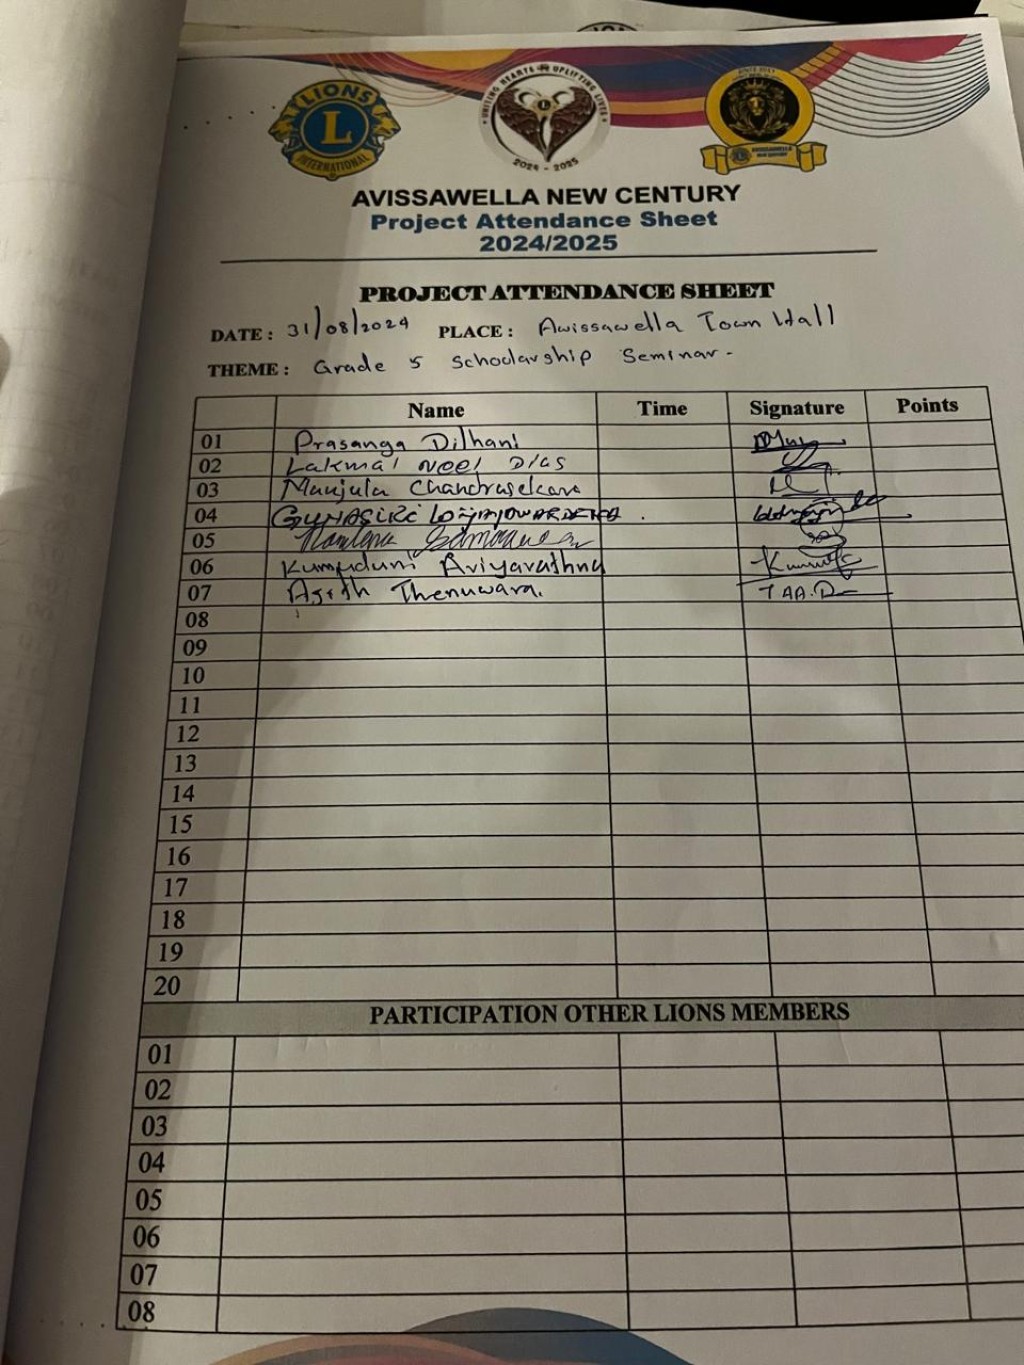 LIONS
L
INTERNATIONAL
UNITING HEARTS UPLIFTING LIVES
2024 - 2025
AVISSAWELLA
NEW CENTURY
AVISSAWELLA NEW CENTURY
Project Attendance Sheet
2024/2025
PROJECT ATTENDANCE SHEET
DATE : 31/08/2024 PLACE : Awissawella Town Hall
THEME : Grade 5 Schoolarship Seminar-
Name Time Signature Points
01 Prasanga Dilhani
02 Lakmal Noel Dias
03 Manjula Chandrasekara
04 GUNASIRI
05
06 Kumuduni Ariyarathna
07 Ajith Thenuwara.
08
09
10
11
12
13
14
15
16
17
18
19
20
PARTICIPATION OTHER LIONS MEMBERS
01
02
03
04
05
06
07
08